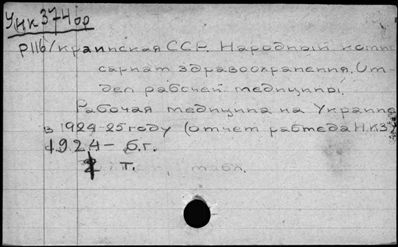 Унк 374бр
р116/Украинская ССР. Народный комис
сариат здравоохранения. От
дел рабочей медицины.
Рабочая медицина на Украине
в 1924-25 году (отчет рабмеда Н.К.З.)
1924 - б.г.
т.
табл.